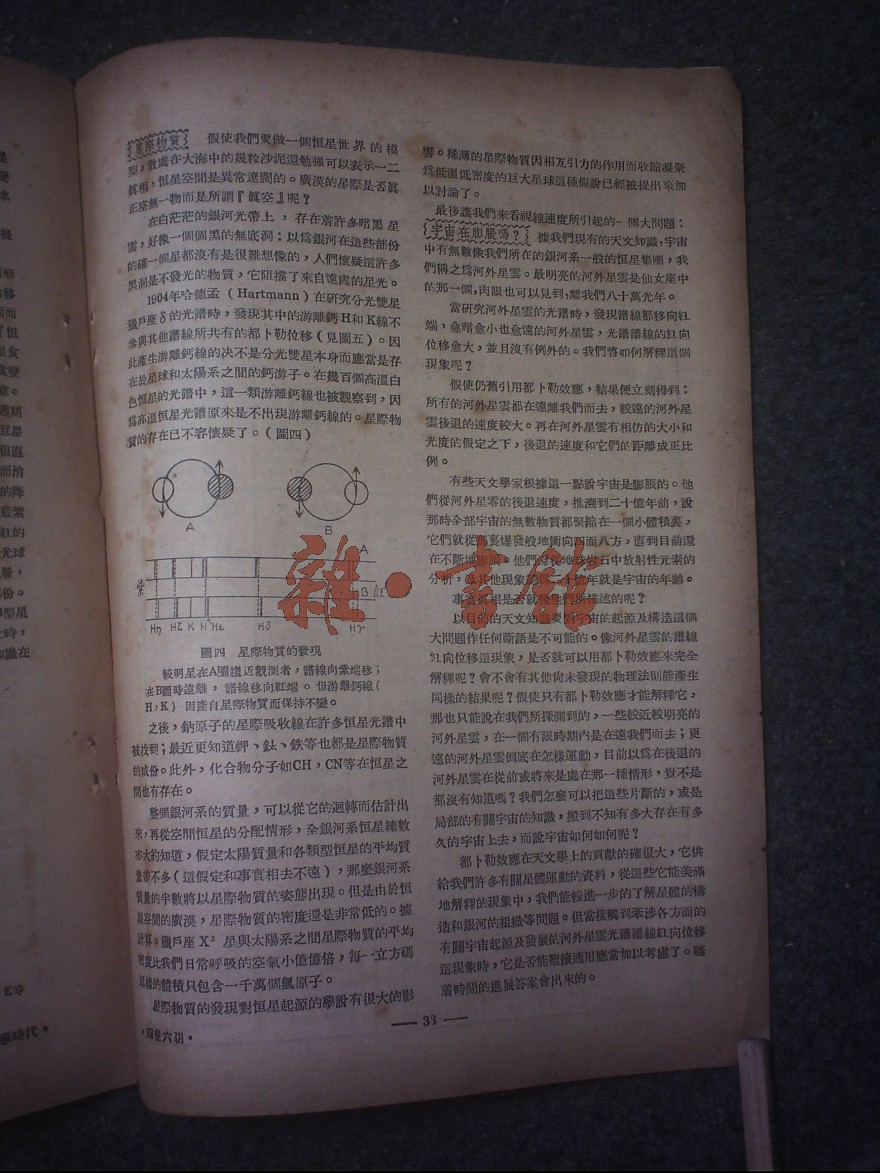 星際物質 假使我們要做一個恒星世界的模
型,散處在大海中的幾粒沙泥還勉強可以表示一二
眞相,恒星空間是異常遼闊的。廣漠的星際是否眞
正空無一物而是所謂『眞空』呢?
在白茫茫的銀河光帶上,存在着許多暗黑星
雲,好像一個個黑的無底洞:以爲銀河在這些部份
的確一個星都沒有是很難想像的,人們懷疑這許多
黑洞是不發光的物質,它阻擋了來自遠處的星光。
1904年哈德孟(Hartmann)在研究分光雙星
獵戶座δ的光譜時,發現其中的游離鈣H和K線不
參與其他譜線所共有的都卜勒位移(見圖五)。因
此產生游離鈣線的決不是分光雙星本身而應當是存
在於星球和太陽系之間的鈣游子。在幾百個高溫白
色恒星的光譜中,這一類游離鈣線也被觀察到,因
爲高溫恒星光譜原來是不出現游離鈣線的。星際物
質的存在已不容懷疑了。(圖四)
A
B
A
紫
B 紅
Hη Hζ K H Hε Hδ Hγ
圖四 星際物質的發現
較明星在A圖邊近觀測者,譜線向紫端移;
在B圖時遠離,譜線移向紅端。但游離鈣線(
H,K)因產自星際物質而保持不變。
之後,鈉原子的星際吸收線在許多恒星光譜中
被找到;最近更知道鉀、鈦、鉄等也都是星際物質
的成份。此外,化合物分子如CH,CN等在恒星之
間也有存在。
整個銀河系的質量,可以從它的迴轉而估計出
來,再從空間恒星的分配情形,全銀河系恒星總數
亦大約知道,假定太陽質量和各類型恒星的平均質
量差不多(這假定和事實相去不遠),那麼銀河系
質量的半數將以星際物質的姿態出現。但是由於恒
星空間的廣漠,星際物質的密度還是非常低的。據
計算。獵戶座X² 星與太陽系之間星際物質的平均
密度比我們日常呼吸的空氣小億億倍,每一立方碼
這樣的體積只包含一千萬個氫原子。
星際物質的發現對恒星起源的學說有很大的影
響。稀薄的星際物質因相互引力的作用而收縮凝聚
爲低溫低密度的巨大星球這種假說已經被提出來加
以討論了。
最後讓我們來看視線速度所引起的一個大問題:
宇宙在膨脹嗎? 據我們現有的天文知識,宇宙
中有無數像我們所在的銀河系一般的恒星集團,我
們稱之爲河外星雲。最明亮的河外星雲是仙女座中
的那一個,肉眼也可以見到,離我們八十萬光年。
當研究河外星雲的光譜時,發現譜線都移向紅
端,愈暗愈小也愈遠的河外星雲,光譜譜線的紅向
位移愈大,並且沒有例外的。我們將如何解釋這個
現象呢?
假使仍舊引用都卜勒效應,結果便立刻得到:
所有的河外星雲都在遠離我們而去,較遠的河外星
雲後退的速度較大。再在河外星雲有相仿的大小和
光度的假定之下,後退的速度和它們的距離成正比
例。
有些天文學家根據這一點說宇宙是膨脹的。他
們從河外星零的後退速度,推溯到二十億年前,說
那時全部宇宙的無數物質都緊縮在一個小體積裏,
它們就從那裏爆發般地衝向四面八方,直到目前還
在不斷地膨脹。他們從地球岩石中放射性元素的
分析,及其他現象
年就是宇宙的年齡。
事實眞相是否就像他們所描述的呢?
以目前的天文知識要對宇宙的起源及構造這個
大問題作任何斷語是不可能的。像河外星雲的譜線
紅向位移這現象,是否就可以用都卜勒效應來完全
解釋呢?會不會有其他尙未發現的物理法則能產生
同樣的結果呢?假使只有都卜勒效應才能解釋它,
那也只能說在我們所探測到的,一些較近較明亮的
河外星雲,在一個有限時期內是在遠我們而去;更
遠的河外星雲倒底在怎樣運動,目前以爲在後退的
河外星雲在從前或將來是處在那一種情形,豈不是
都沒有知道嗎?我們怎麼可以把這些片斷的,或是
局部的有關宇宙的知識,搬到不知有多大存在有多
久的宇宙上去,而說宇宙如何如何呢?
都卜勒效應在天文學上的貢獻的確很大,它供
給我們許多有關星體運動的資料,從這些它能美滿
地解釋的現象中,我們能較進一步的了解星體的構
造和銀河的組織等問題。但當接觸到牽涉各方面的
有關宇宙起源及發展的河外星雲光譜譜線紅向位移
這現象時,它是否能繼續適用應當加以考慮了。隨
着時間的進展答案會出來的。
— 33 —
·四卷六期·
雜·書館